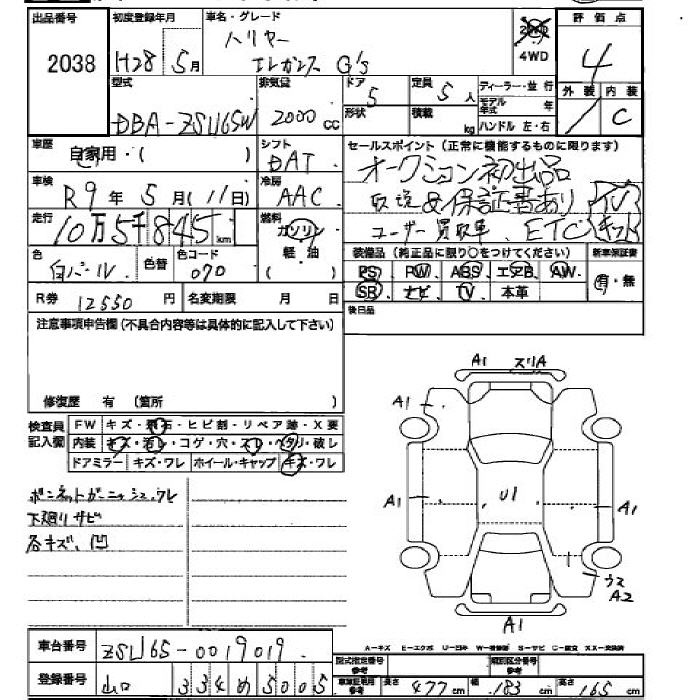 出品番号 初度登録年月 車名・グレード 評価点
2038 H28 5月 ハリヤー 2WD 4
エレガンス G's 4WD
外装 内装
型式 排気量 ドア 定員 ディーラー・並行
DBA-ZSU65W 2000cc 5 5人 モデル年式 年 C
形状 積載 kg ハンドル 左・右
車歴 自家用・( ) シフト DAT セールスポイント(正常に機能するものに限ります)
オークション初出品
車検 R9年 5月(11日) 冷房 AAC
取説&保証書あり TV
走行 10万5千845km 燃料 ガソリン
ユーザー買取車、ETC
軽・油
( )
色 白パール 色替 色コード 070
装備品(純正品に限り○をつけてください) 新車保証書
PS PW ABS エアB AW 有・無
SR ナビ TV 本革
R券 12550円 名変期限 月 日
後日品
注意事項申告欄(不具合内容等は具体的に記入して下さい)
修復歴 有 (箇所 )
検査員記入欄
FW キズ・飛石・ヒビ割・リペア跡・X要
内装 キズ・汚レ・コゲ・穴・スレ・ヘタリ・破レ
ドアミラー キズ・ワレ ホイール・キャップ キズ・ワレ
ボンネットガーニッシュワレ
下廻りサビ
各キズ、凹
A1 スリA
A1
A1 U1 A1
ウス
A2
A1
車台番号 ZSU65-0019019
登録番号 山口 334 め 5005
型式指定番号 参考 類別区分番号 参考
車庫証明用 参考 長さ 477cm 幅 183cm 高さ 165cm